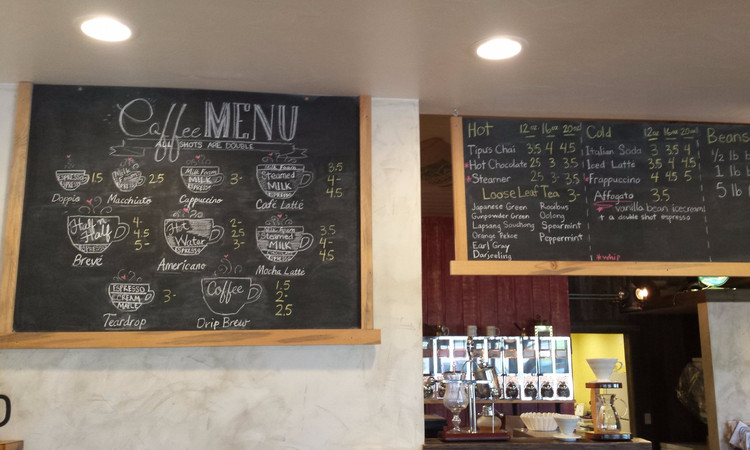 Coffee MENU
ALL SHOTS ARE DOUBLE
ESPRESSO
1.5
Doppio
MILK
ESPRESSO
2.5
Macchiato
MILK
ESPRESSO
3-
Cappuccino
Milk Foam
Steamed
MILK
ESPRESSO
3.5
4-
4.5
Café Latté
Half n
Half
ESPRESSO
4-
4.5
5-
Brevé
Hot
Water
ESPRESSO
2-
2.5
3-
Americano
Milk Foam
Steamed
MILK
ESPRESSO
3.5
4-
4.5
Mocha Latté
ESPRESSO
CREAM
MAPLE
3-
Teardrop
Coffee
1.5
2-
2.5
Drip Brew
Hot 12oz 16oz 20oz
Tipus Chai 3.5 4 4.5
Hot Chocolate 2.5 3 3.5
Steamer 2.5 3 3.5
Loose Leaf Tea 3-
Japanese Green
Gunpowder Green
Lapsang Souchong
Orange Pekoe
Earl Grey
Darjeeling
Rooibus
Oolong
Spearmint
Peppermint
Cold 12oz 16oz 20oz
Italian Soda 3 3.5 4
Iced Latté 3.5 4 4.5
Frappuccino 4 4.5 5
Affogato 3.5
vanilla bean icecream
+ a double shot espresso
*whip
Beans
1/2 lb
1 lb
5 lb